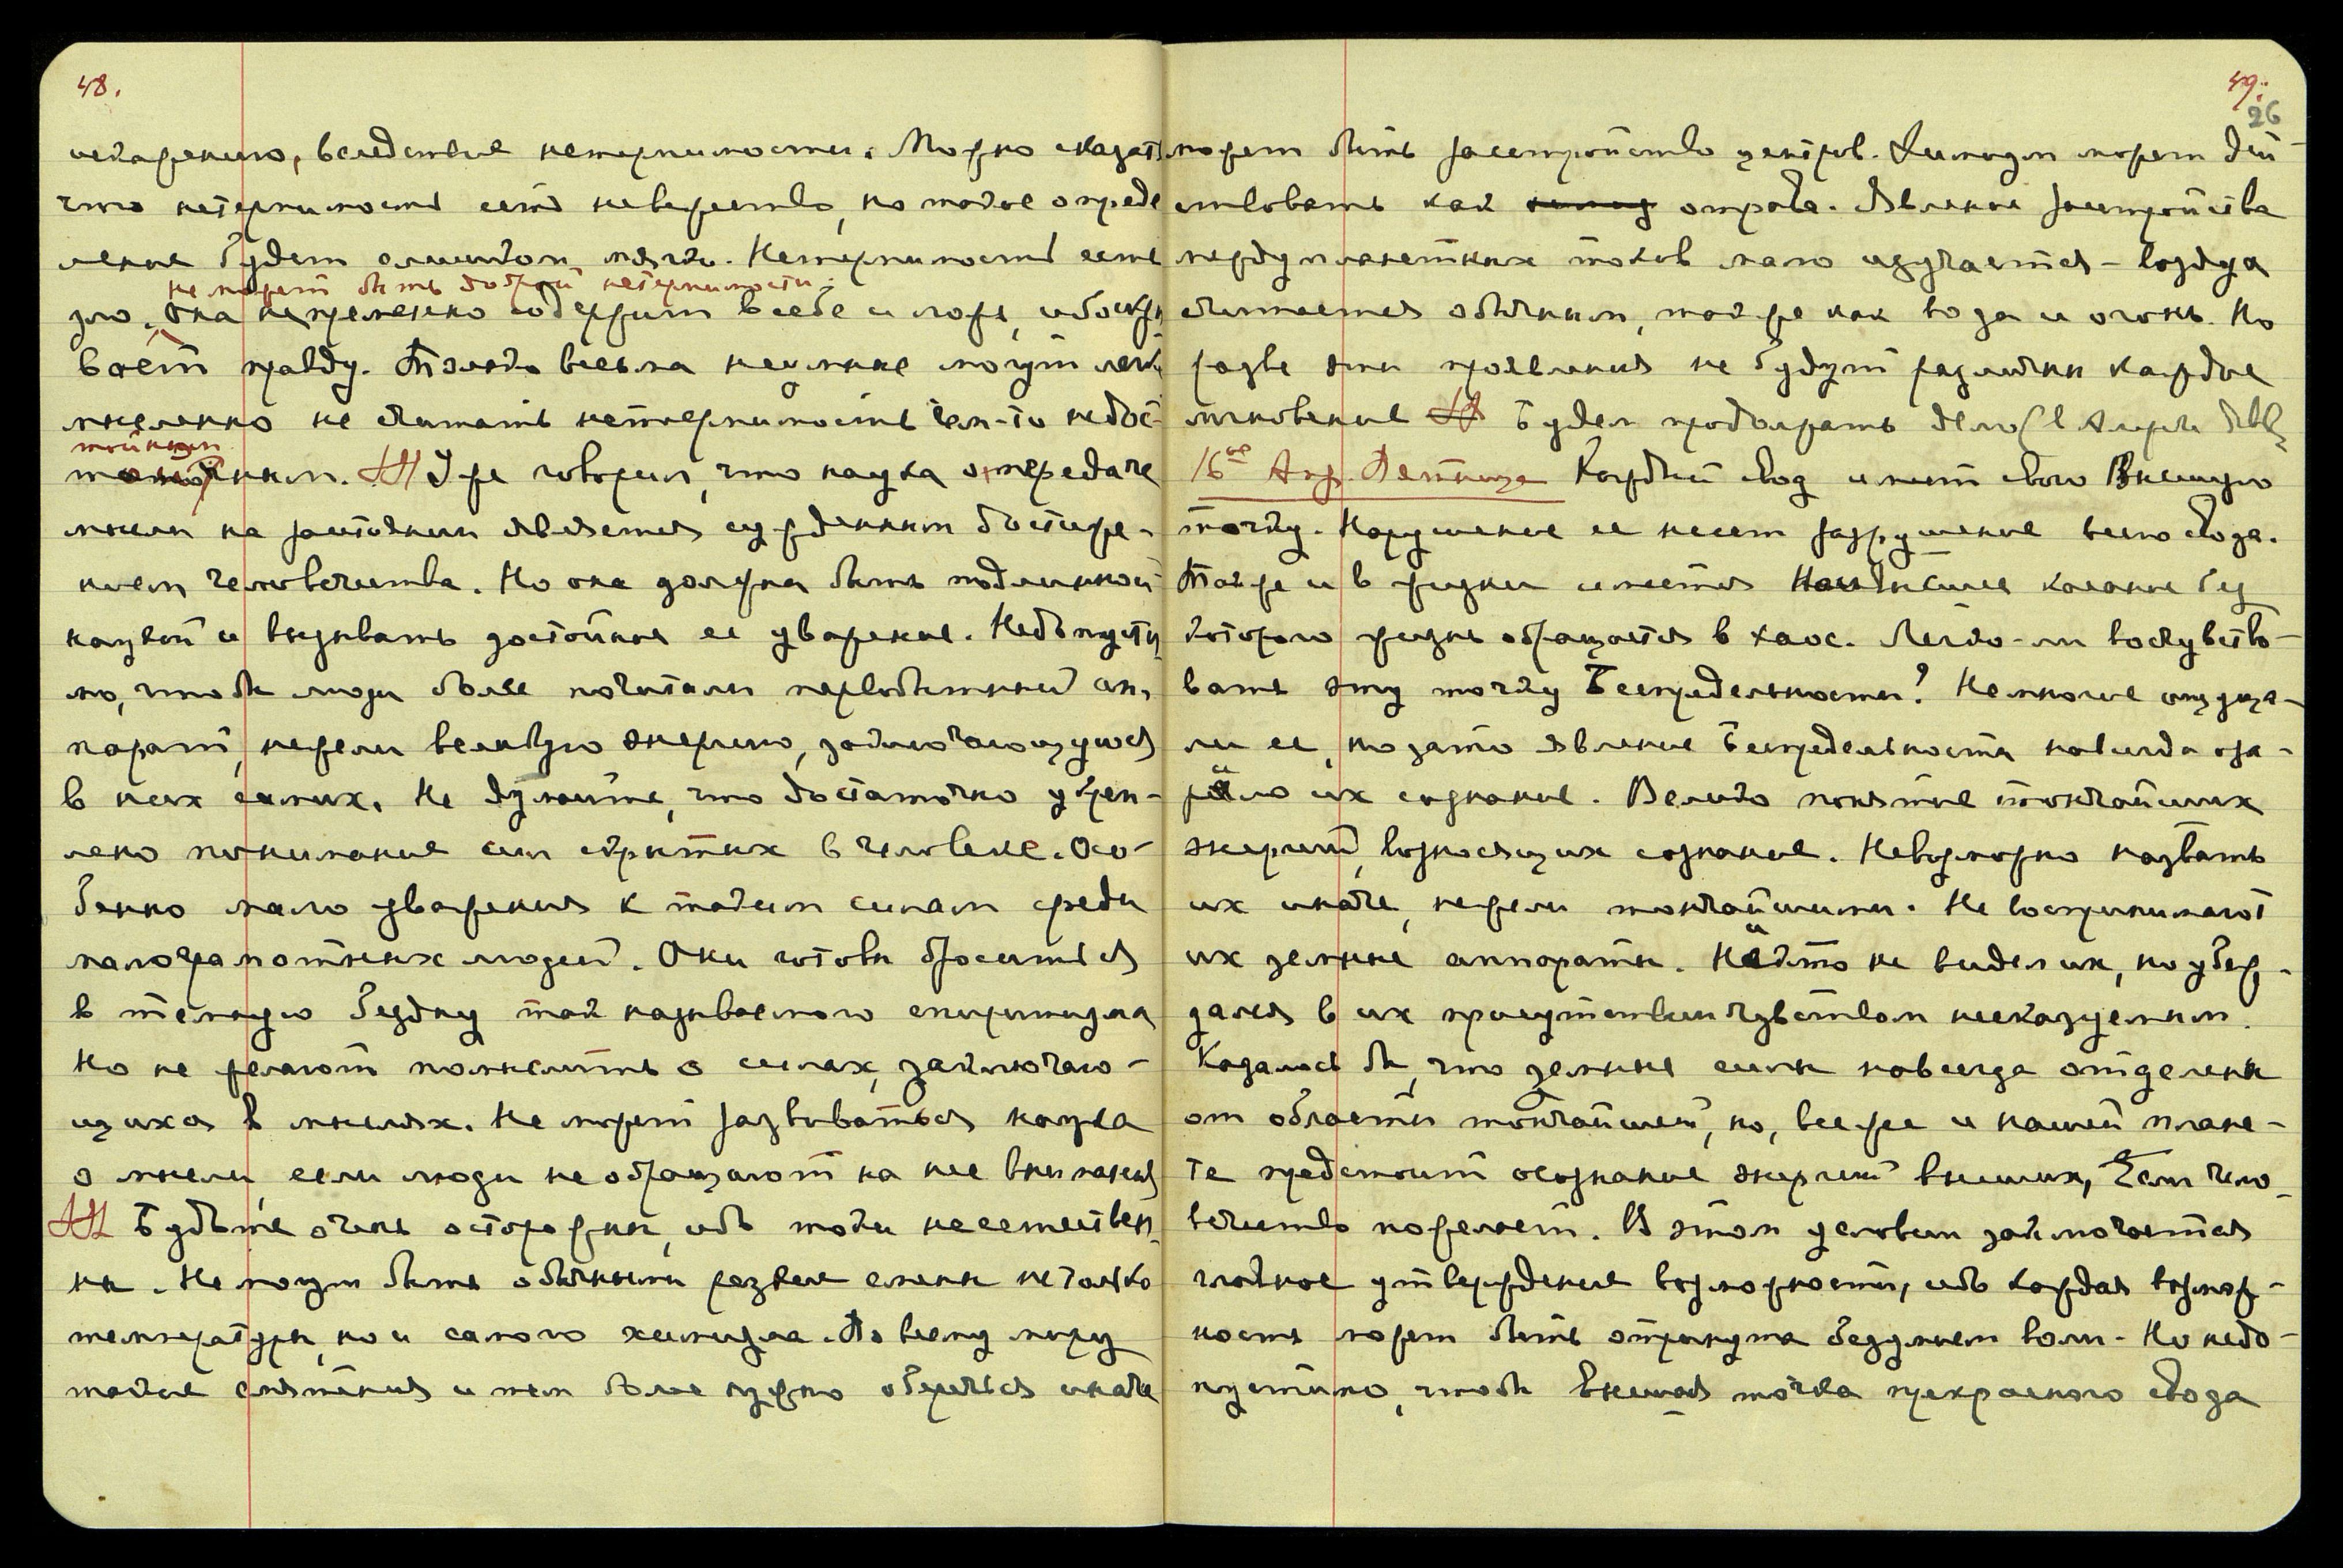 48.
искажению, вследствие нетерпимости. Можно сказать
что нетерпимость есть невежество, но такое опреде
ление будет слишком мягко. Нетерпимость есть
не может быть доброй нетерпимости.
зло. Она непременно содержит в себе и ложь, ибо скры
вает правду. Только весьма неумные могут легко
мысленно не считать нетерпимость чем-то недос-
тойным
тойным. Уже говорил, что наука о передаче
мысли на расстоянии является сужденным достиже-
нием человечества. Но она должна быть подлинной
наукой и вызывать достойное ее уважение. Недопусти
мо, чтобы люди более почитали первобытный ап-
парат, нежели великую энергию, заключающуюся
в них самих. Не думайте, что достаточно укреп-
лено понимание сил скрытых в человеке. Осо-
бенно мало уважения к таким силам среди
малограмотных людей. Они готовы броситься
в темную бездну так называемого спиритизма
Но не желают помыслить о силах, заключаю-
щихся в мыслях. Не может развиваться наука
о мысли, если люди не обращают на нее внимания
Будьте очень осторожны, ибо токи неестествен-
ны. Не могут быть обычными резкие смены не только
температуры, но и самого химизма. По всему миру
такие смятения и тем более нужно оберечься иначе
49.
26
может быть расстройство центров. Химизм может дей-
ствовать как отрава. Явление расстройства
междупланетных токов мало изучается - воздух
считается обычным, также как вода и огонь. Но
разве эти проявления не будут различны каждое
мгновение Будем продолжать дело в Америке
16ое Апр. Пятница Каждый свод имеет свою Высшую
точку. Нарушение ее несет разрушение всего свода.
Также и в жизни имеется Наивысшее искание без
которого жизнь обращается в хаос. Легко-ли восчувство-
вать эту точку Беспредельности? Немногие ощуща-
ли ее, но зато явление Беспредельности навсегда оза-
ряло их сознание. Велико понятие тончайших
энергий, возносящих сознание. Невозможно назвать
их иначе, нежели тончайшими. Не воспринимают
их земные аппараты. Некто не видел их, но убеж-
дался в их присутствии чувством несказуемым.
Казалось бы, что земные силы навсегда отделены
от области тончайшей, но, все же и нашей плане-
те предстоит осознание энергий высших, Если чело-
вечество пожелает. В этом условии заключается
главное утверждение возможности, ибо каждая возмож-
ность может быть отринута безумием воли. Но недо-
пустимо, чтобы Высшая точка прекрасного свода